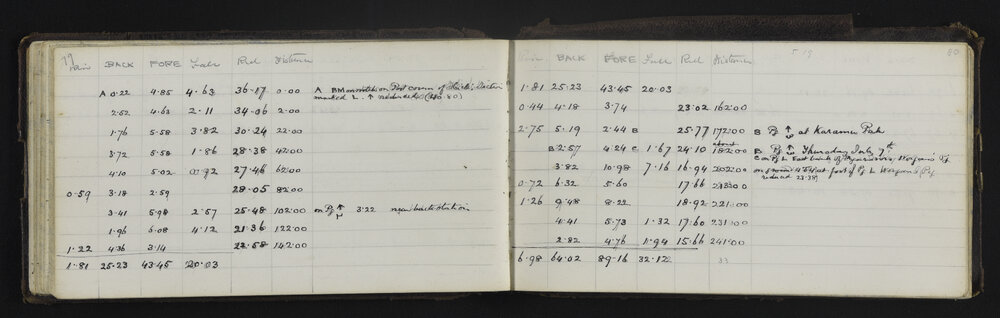 79
Rise BACK FORE Fall Red Distance
A 0.22 4.85 4.63 36.17 0.00 A BM on Post corner of
marked L. ↑ reduced
2.52 4.63 2.11 34.06 2.00
1.76 5.58 3.82 30.24 22.00
3.72 5.58 1.86 28.38 42.00
4.10 5.02 0.92 27.46 62.00
0.59 3.18 2.59 28.05 82.00
3.41 5.98 2.57 25.48 102.00 on Pg 3.22
1.96 6.08 4.12 21.36 122.00
1.22 4.36 3.14 22.58 142.00
1.81 25.23 43.45 20.03
80
BACK FORE Fall Red Distance
1.81 25.23 43.45 20.03
0.44 4.18 3.74 23.02 162.00
2.75 5.19 2.44 B 25.77 172.00 B Pg at Karamu Park
B 2.57 4.24 C 1.67 24.10 182.00 B Pg Thursday July 7th
3.82 10.98 7.16 16.94 202.00
0.72 6.32 5.60 17.66
reduced 23.38)
1.26 9.48 8.22 18.92 221.00
4.41 5.73 1.32 17.60 231.00
2.82 4.76 1.94 15.66 241.00
6.98 64.02 89.16 32.12